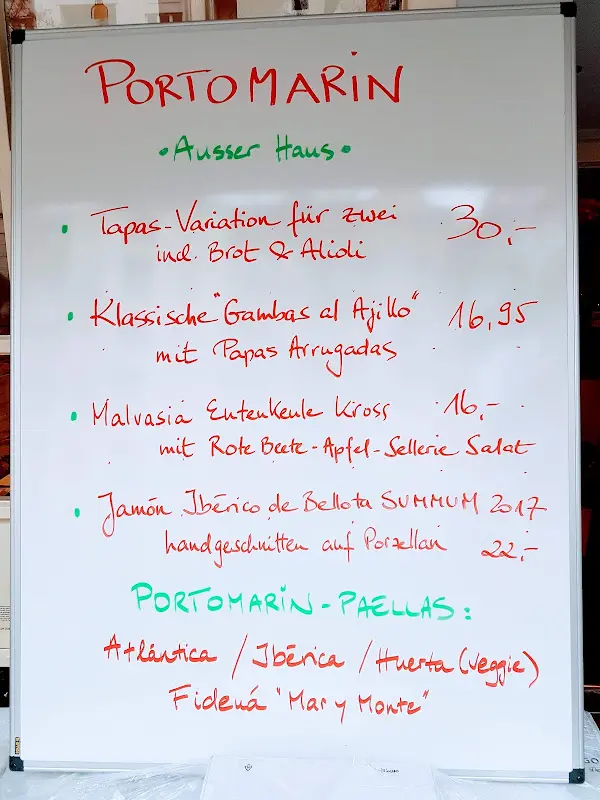 PORTOMARiN
• Ausser Haus •
• Tapas-Variation für zwei 30,-
incl. Brot & Alioli
• Klassische "Gambas al Ajillo" 16,95
mit Papas Arrugadas
• Malvasia Entenkeule Kross 16,-
mit Rote Beete-Apfel-Sellerie Salat
• Jamón Ibérico de Bellota SUMMUM 2017
handgeschnitten auf Porzellan 22,-
PORTOMARiN-PAELLAS:
Atlántica / Ibérica / Huerta (veggie)
Fideuá "Mar y Monte"